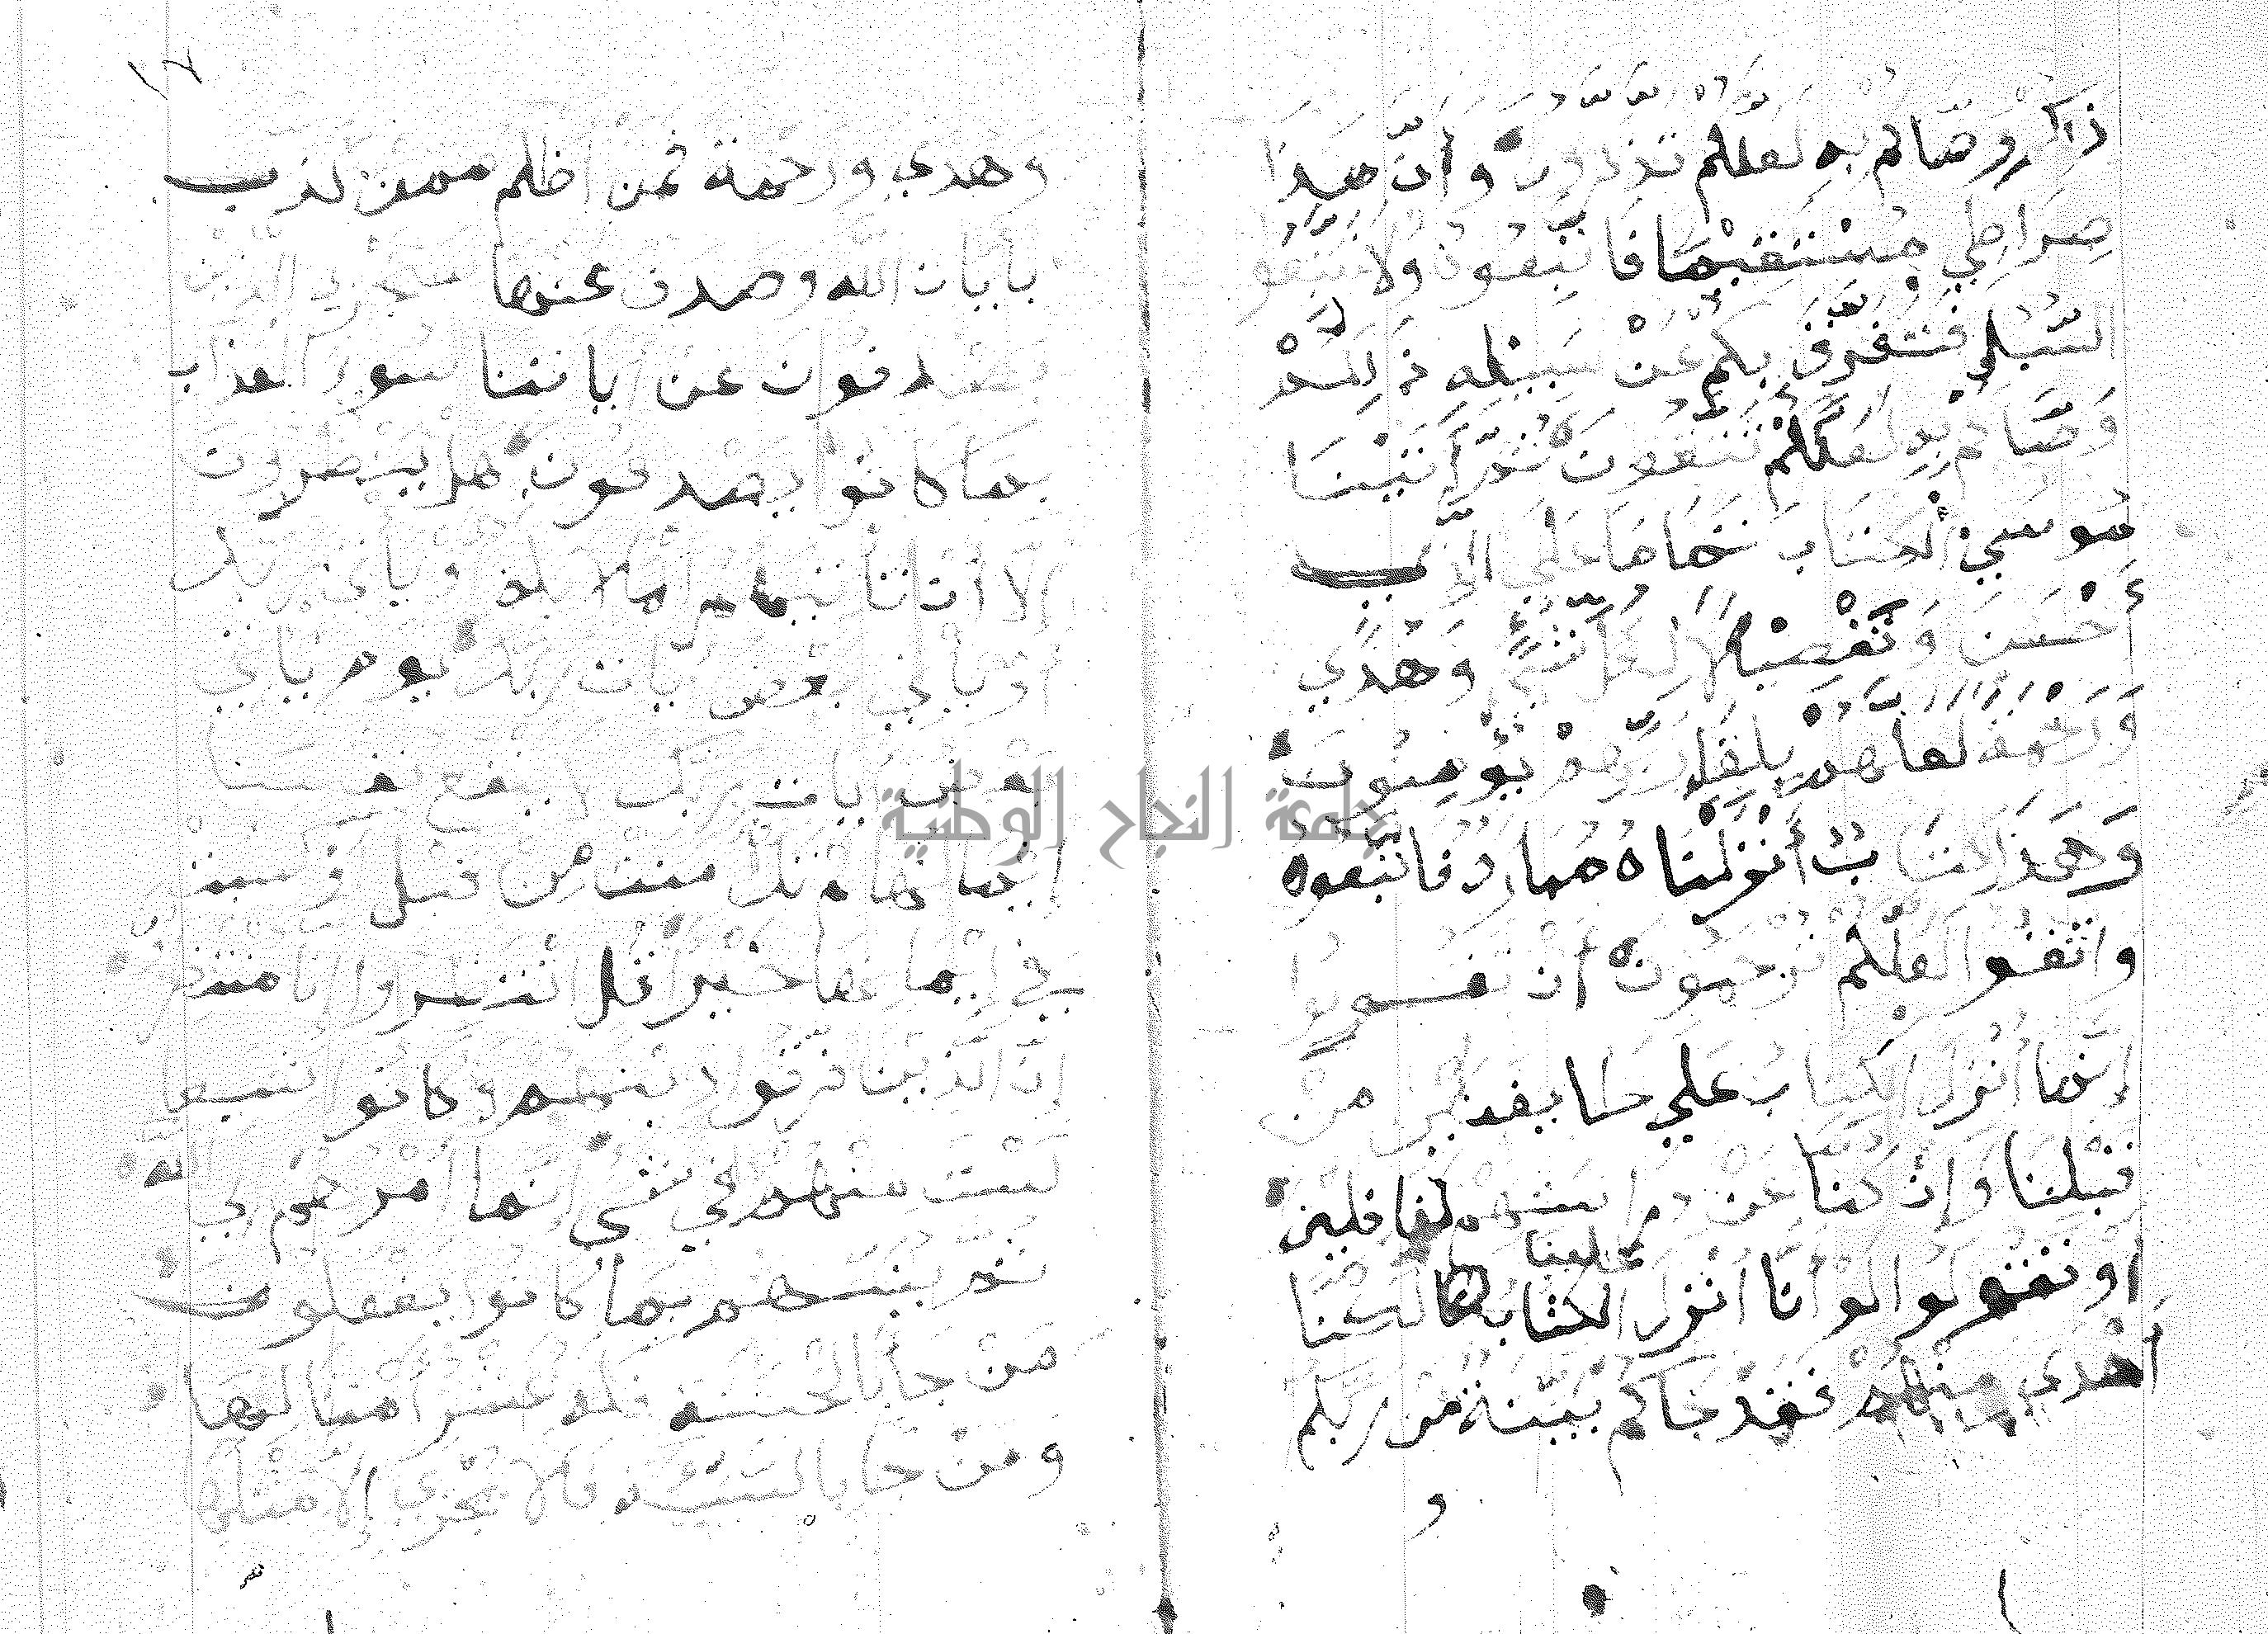 ذلكم وصاكم به لعلكم تذكرون وأنّ هذا
صِرَاطِي مُسْتَقِيمًا فاتبعوه ولا تتبعو
السّبل فَتَفَرَّقَ بكم عَنْ سَبِيلِهِ ذَلِكُمْ
وَصَّاكم بِهِ لعلكم تتقون ثُمَّ أتَيْنَا
مُوسَى الكتَابَ تمامًا عَلَى الذي
أَحْسَنَ وَتَفْصِيلًا لِكلّ شَيْءٍ وهدًي
وَرَحْمَة لعلهم بِلِقَاءِ رَبِّهِمْ يُؤْمِنُونَ
وَهَذَا كتَابٌ أَنْزَلْنَاهُ مُبارك فاتّبعوه
واتّقوا لعلّكم تُرحمُونَ أن تقولوا
إنّما أُنْزل الكتابُ عَلَي طايفتين من
قَبْلِنَا وَإِنْ كُنا عَنْ دراستهم لغافلين
اوْ تقولوا لو أنا انزل علينا الكتاب لكنا
أَهْدَي منهم فَقَدْ جَاكم بَيّنة من ربكم
و
١٦
وهدي ورحمة فمن اظلم ممن كذب
بايات الله وصدف عنها سنجزي الذين
يصدفون عن اياتنا سوء العذاب
بما كانوا يصدفون هل ينظرون
إلا أن تاتيهم الملائكة او ياتي ربك
أو ياتي بعض ايات ربك يوم ياتي
بعض ايات ربك لا ينفع نفسا
ايمانها لم تكن امنت مِن قبل أو كسبت
في إيمانها خَيْرا قل انتظروا انا منتظرون
إنّ الذين فرّقوا دينهم وكانو اشيعا
لَسْتَ منهم في شي إنما امْرُهم إلي الله
ثم ينبئهم بما كانوا يفعلون
مَنْ جَا بالحَسَنَة فله عَشْر أمثالها
وَمَنْ جَا بالسَّيّئَة فَلَا يُجْزَي إلّا مثلها
جامعة النجاح الوطنية